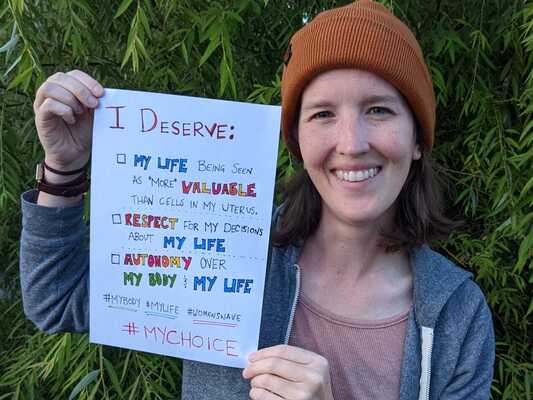 I DESERVE:
MY LIFE BEING SEEN
AS "MORE" VALUABLE
THAN CELLS IN MY UTERUS.
RESPECT FOR MY DECISIONS
ABOUT MY LIFE
AUTONOMY OVER
MY BODY & MY LIFE
#MYBODY #MYLIFE #WOMENSWAVE
#MYCHOICE